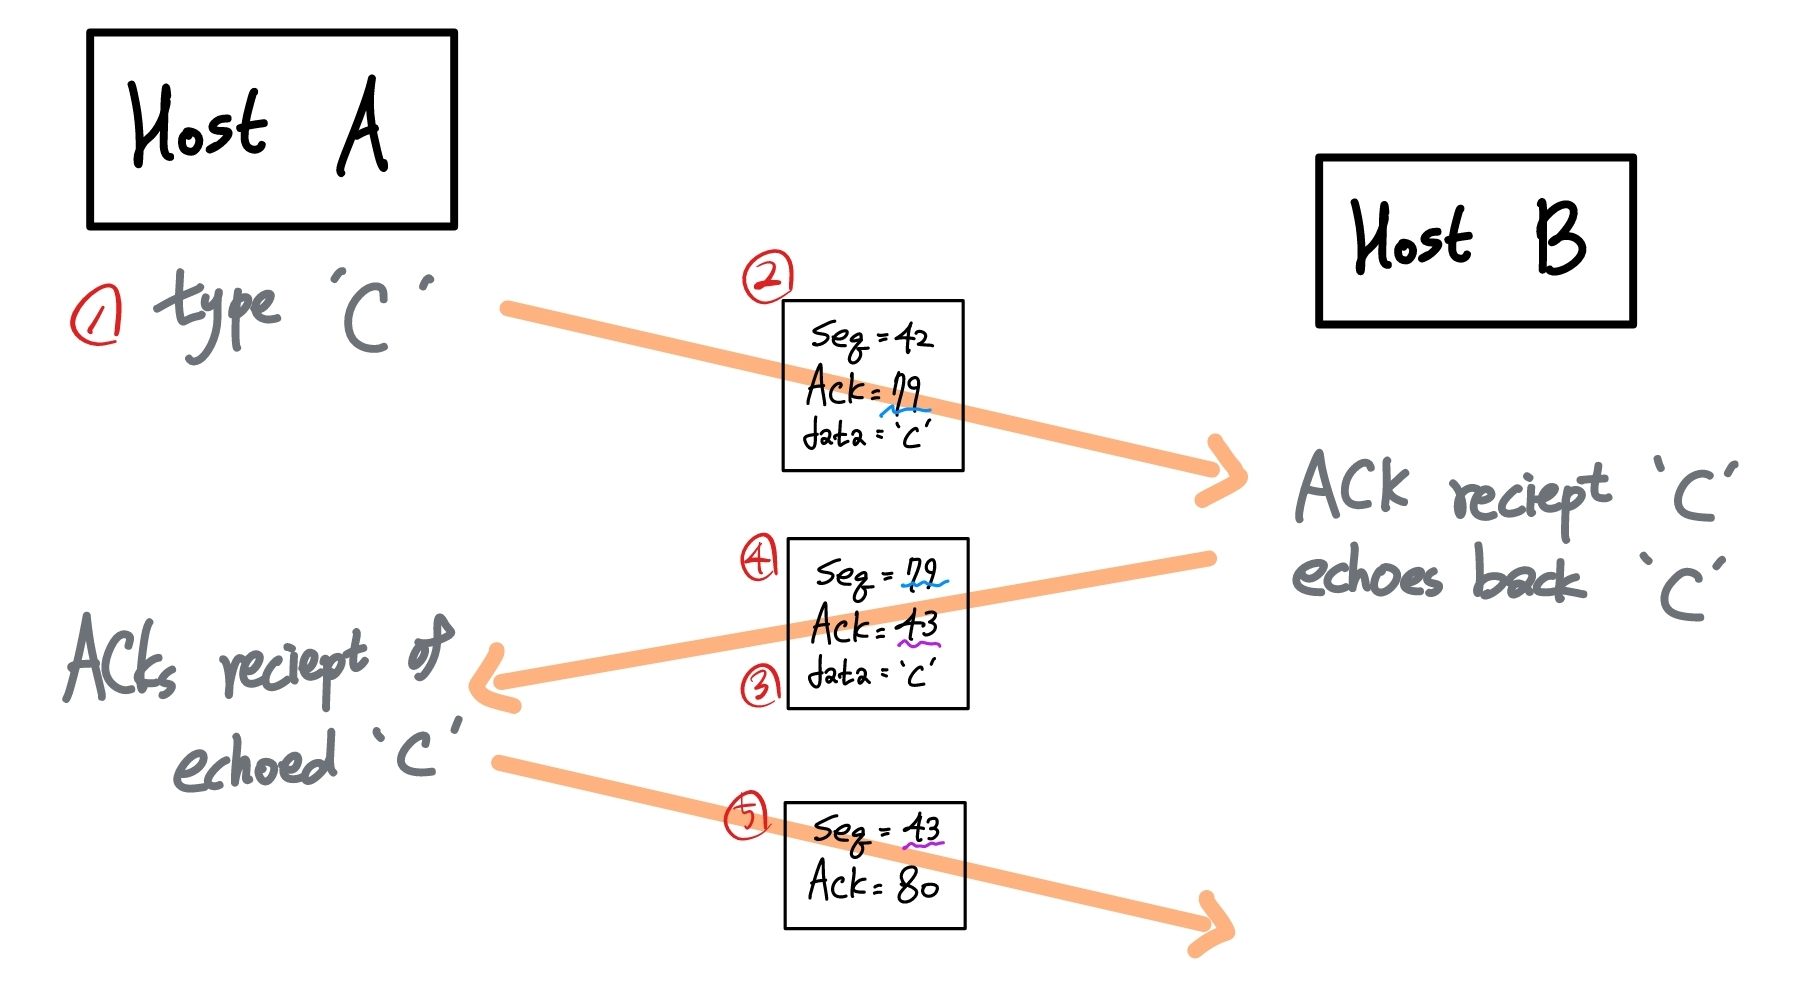 Host A
Host B
① type 'C'
②
Seq = 42
Ack = 79
data = 'C'
ACK reciept 'C'
echoes back 'C'
④
Seq = 79
Ack = 43
③
data = 'C'
ACKs reciept of
echoed 'C'
⑤
Seq = 43
Ack = 80